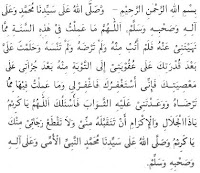 بِسْمِ اللهِ الرَّحْمٰنِ الرَّحِيْمِ – وَصَلَّى اللهُ عَلَى سَيِّدِنَا مُحَمَّدٍ وَعَلَى
آلِهِ وَصَحْبِهِ وَسَلَّمَ. اَللّٰهُمَّ مَا عَمِلْتُ فِيْ هٰذِهِ السَّنَةِ مِمَّا
نَهَيْتَنِيْ عَنْهُ فَلَمْ أَتُبْ مِنْهُ وَلَمْ تَرْضَهُ وَلَمْ تَنْسَهُ وَحَلُمْتَ عَلَيَّ
بَعْدَ قُدْرَتِكَ عَلَى عُقُوْبَتِيْ وَدَعَوْتَنِيْ إِلَى التَّوْبَةِ مِنْهُ بَعْدَ جُرْأَتِيْ عَلَى
مَعْصِيَتِكَ فَإِنِّي أَسْتَغْفِرُكَ فَاغْفِرْلِيْ وَمَا عَمِلْتُ فِيْهَا مِمَّا
تَرْضَاهُ وَوَعَدْتَنِيْ عَلَيْهِ الثَّوَابَ فَأَسْئَلُكَ اَللّٰهُمَّ يَا كَرِيْمُ
يَاذَاالْجَلَالِ وَالْإِكْرَامِ أَنْ تَتَقَبَّلَهُ مِنِّيْ وَلَا تَقْطَعْ رَجَائِيْ مِنْكَ
يَاكَرِيْمُ وَصَلَّى اللهُ عَلَى سَيِّدِنَا مُحَمَّدٍ النَّبِيِّ الْأُمِّيِّ وَعَلَى آلِهِ
وَصَحْبِهِ وَسَلَّمَ.